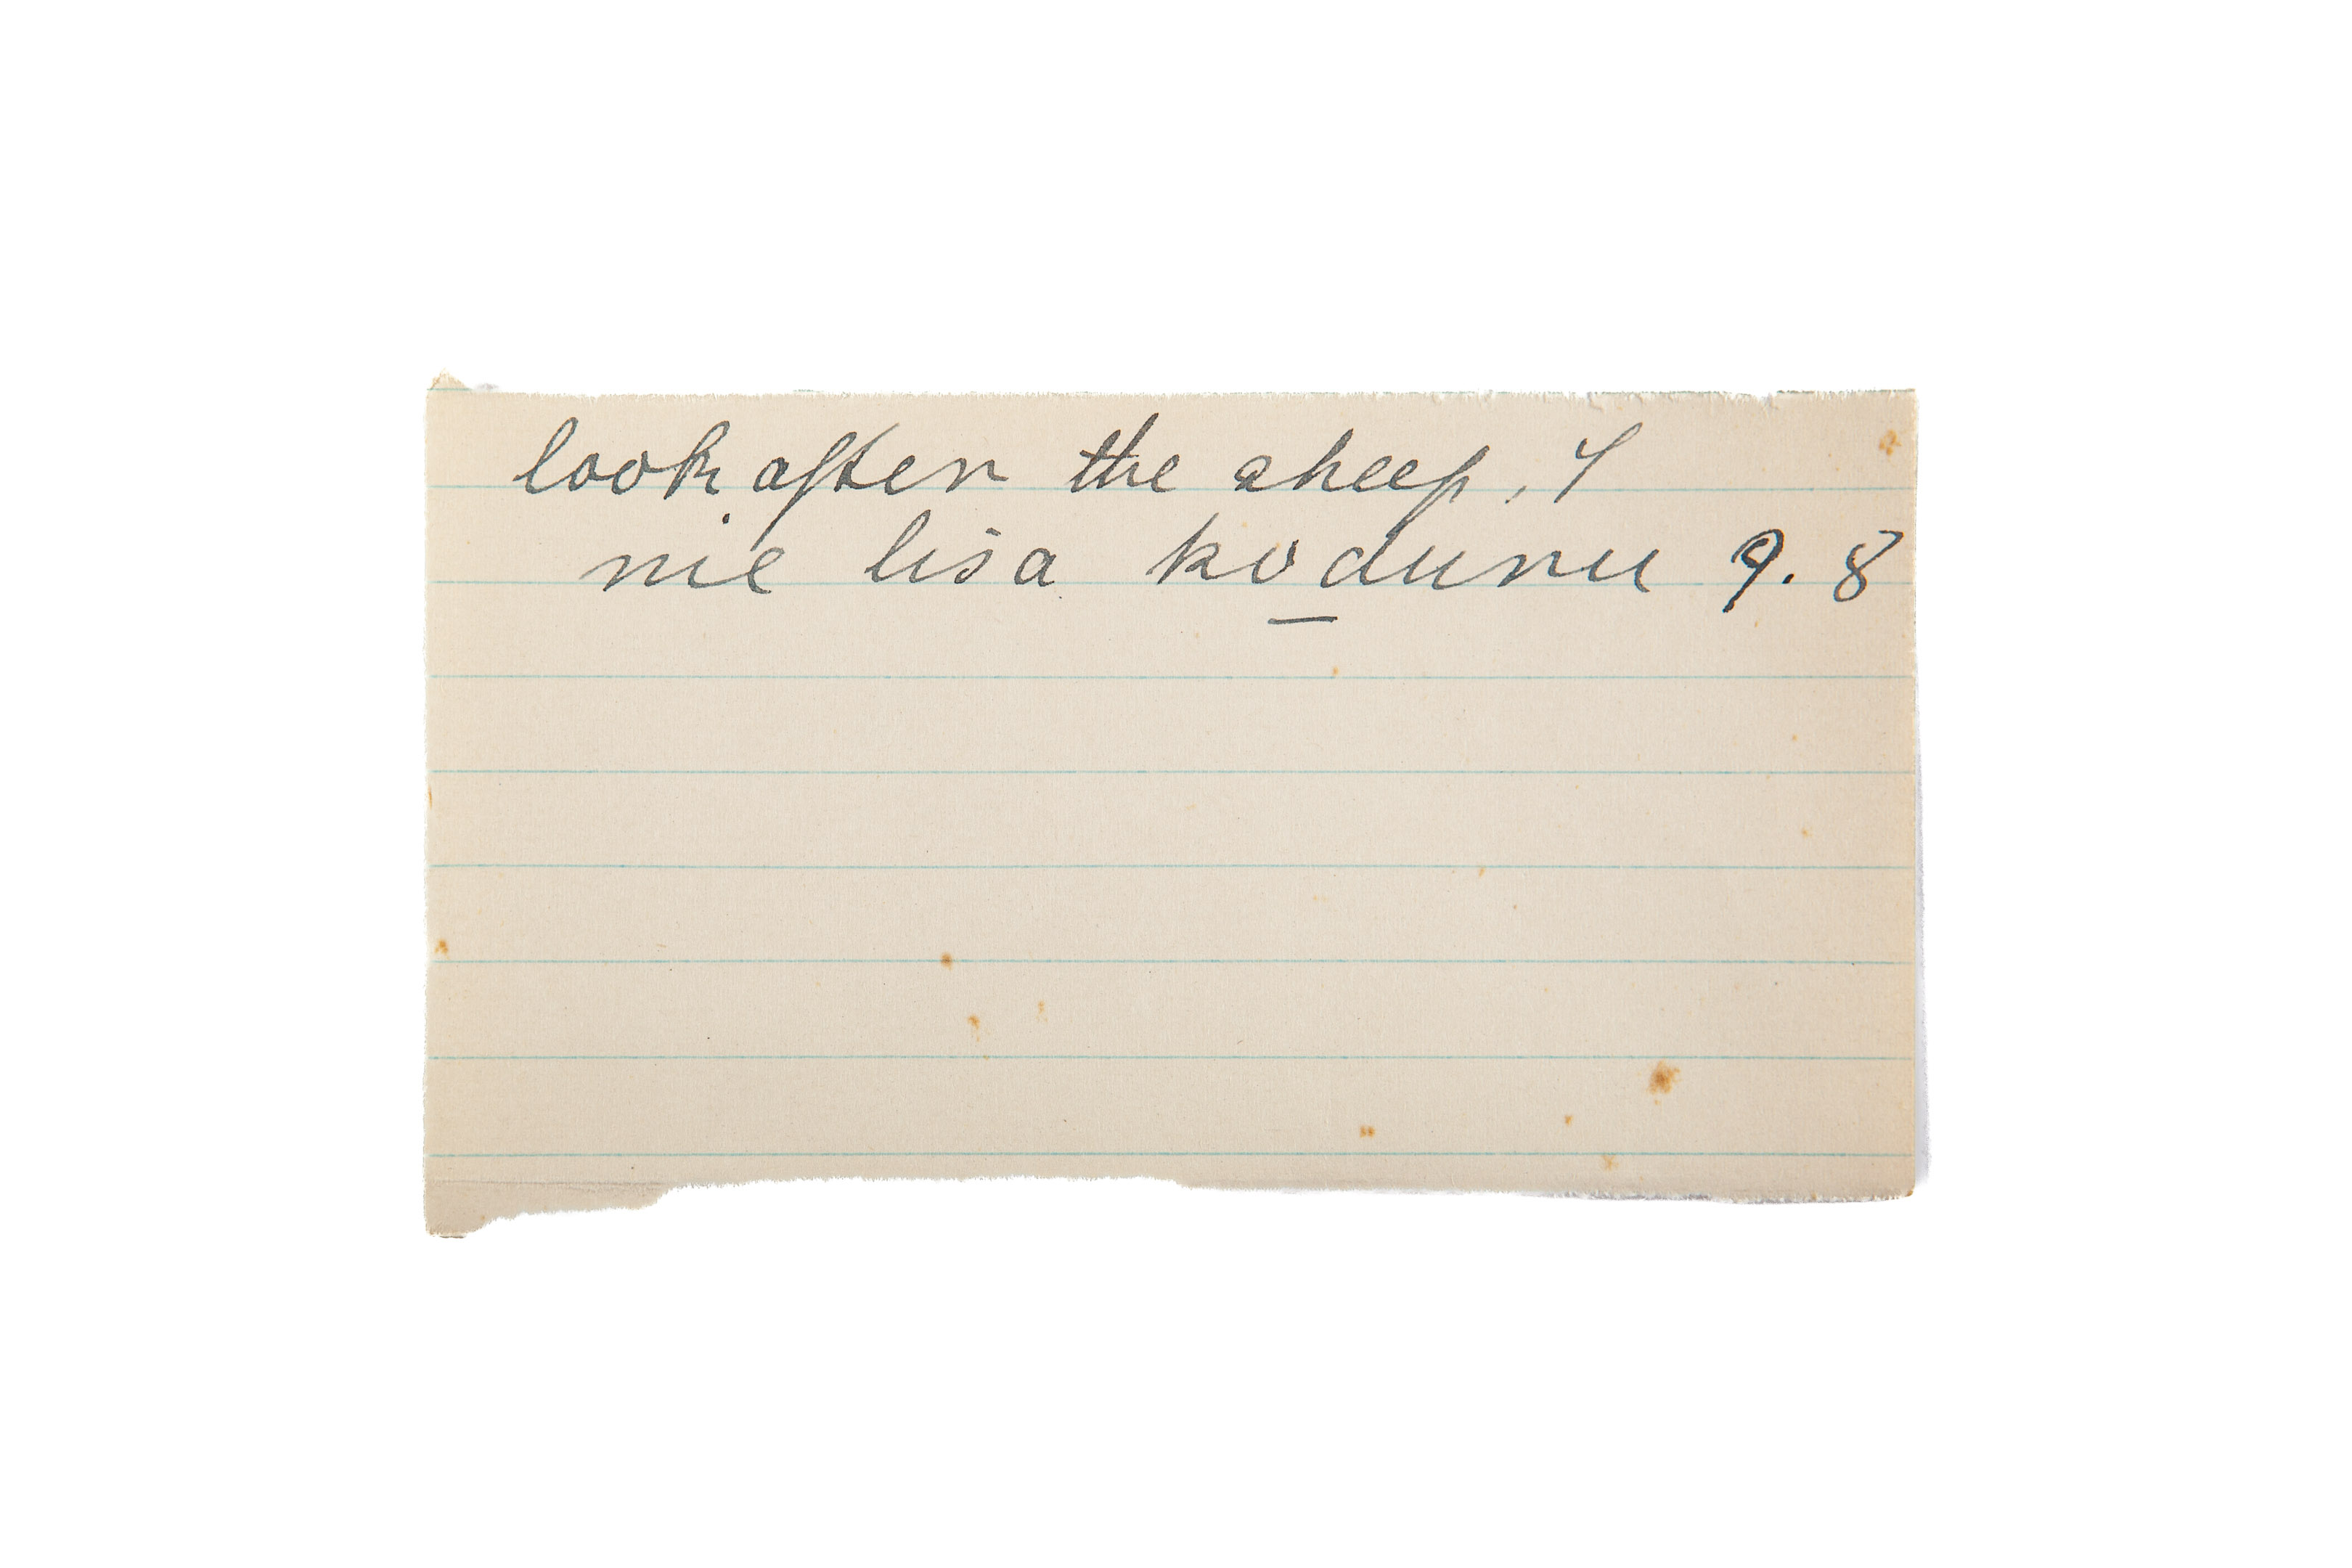 look after the sheep, I
nie lisa ko̱dunu 9. 8